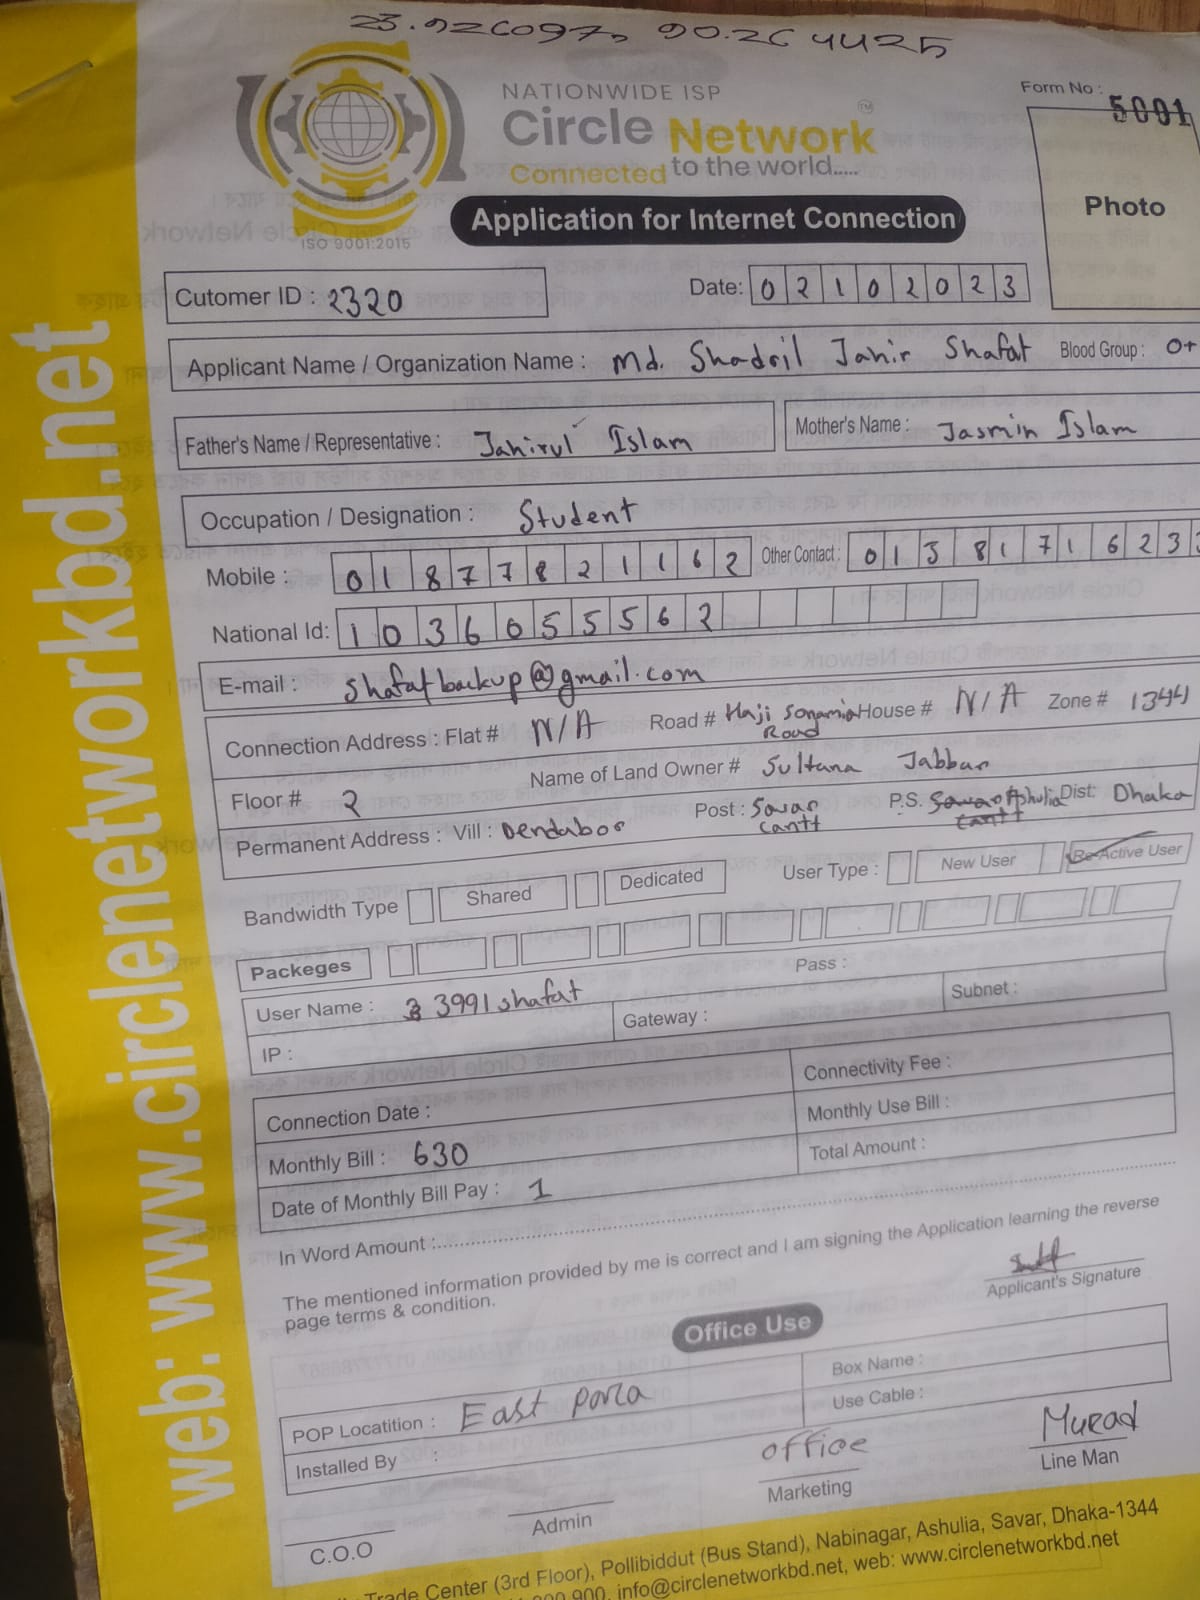 23.926097, 90.264425
NATIONWIDE ISP
Circle Network TM
Connected to the world.....
ISO 9001:2015
Form No : 5001
Photo
Application for Internet Connection
Cutomer ID : 2320
Date: 02102023
Applicant Name / Organization Name : Md. Shadril Jahir Shafat Blood Group : O+
Father's Name / Representative : Jahirul Islam Mother's Name : Jasmin Islam
Occupation / Designation : Student
Mobile : 01877821162 Other Contact : 0138171623
National Id: 1036055562
E-mail : shafatbackup@gmail.com
Connection Address : Flat # N/A Road # Haji Sonamia Road House # N/A Zone # 1344
Floor # 2 Name of Land Owner # Sultana Jabbar
Permanent Address : Vill : Dendabor Post : Savar Cantt P.S. Ashulia Dist: Dhaka
Bandwidth Type Shared Dedicated User Type : New User Re-Active User
Packeges
User Name : 3991shafat Pass :
IP : Gateway : Subnet :
Connection Date : Connectivity Fee :
Monthly Bill : 630 Monthly Use Bill :
Date of Monthly Bill Pay : 1 Total Amount :
In Word Amount :
The mentioned information provided by me is correct and I am signing the Application learning the reverse
page terms & condition.
Applicant's Signature
Office Use
POP Locatition : East Para Box Name :
Installed By : Use Cable :
office Murad
C.O.O Admin Marketing Line Man
Trade Center (3rd Floor), Pollibiddut (Bus Stand), Nabinagar, Ashulia, Savar, Dhaka-1344
900, info@circlenetworkbd.net, web: www.circlenetworkbd.net
web: www.circlenetworkbd.net